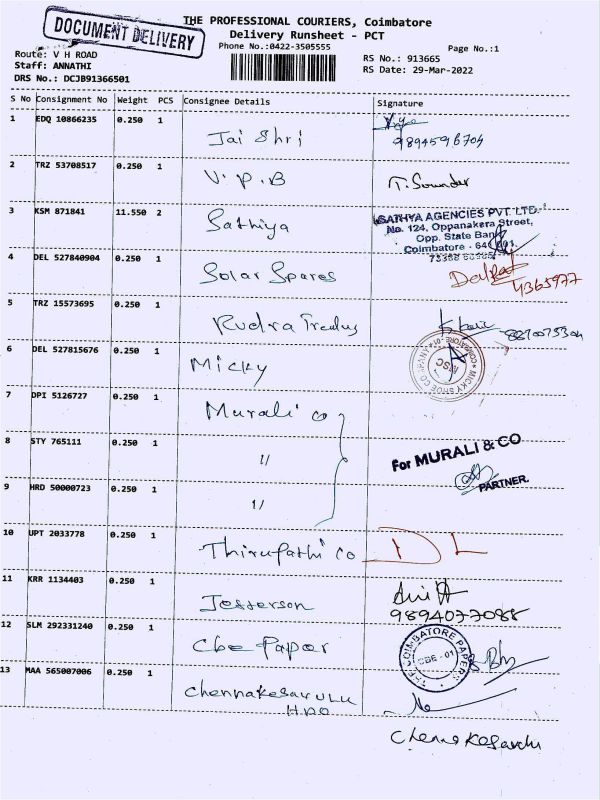 THE PROFESSIONAL COURIERS, Coimbatore
DOCUMENT DELIVERY
Delivery Runsheet - PCT
Phone No.:0422-3505555
Page No.:1
Route: V H ROAD
RS No.: 913665
Staff: ANNATHI
RS Date: 29-Mar-2022
DRS No.: DCJB91366501
S No Consignment No Weight PCS Consignee Details Signature
1 EDQ 10866235 0.250 1 Jai Shri
2 TRZ 53708517 0.250 1 V.P.B T. Sounder
3 KSM 871841 11.550 2 Sathiya
SATHYA AGENCIES PVT. LTD.
No. 124, Oppanakara Street,
Opp. State Bank
Coimbatore - 641 001.
4 DEL 527840904 0.250 1 Solar Spares
4365977
5 TRZ 15573695 0.250 1 Rudra
6 DEL 527815676 0.250 1 Micky
MICKY SHOE COMPANY COIMBATORE-01
7 DPI 5126727 0.250 1 Murali Co
8 STY 765111 0.250 1 11
For MURALI & CO
PARTNER.
9 HRD 50000723 0.250 1 11
10 UPT 2033778 0.250 1 Thirupathi Co DL
11 KRR 1134403 0.250 1 Jesserson
9894077088
12 SLM 292331240 0.250 1 Cbe Papar
THE COIMBATORE PAPERS
CBE - 01
13 MAA 565007006 0.250 1 Chennakesavulu